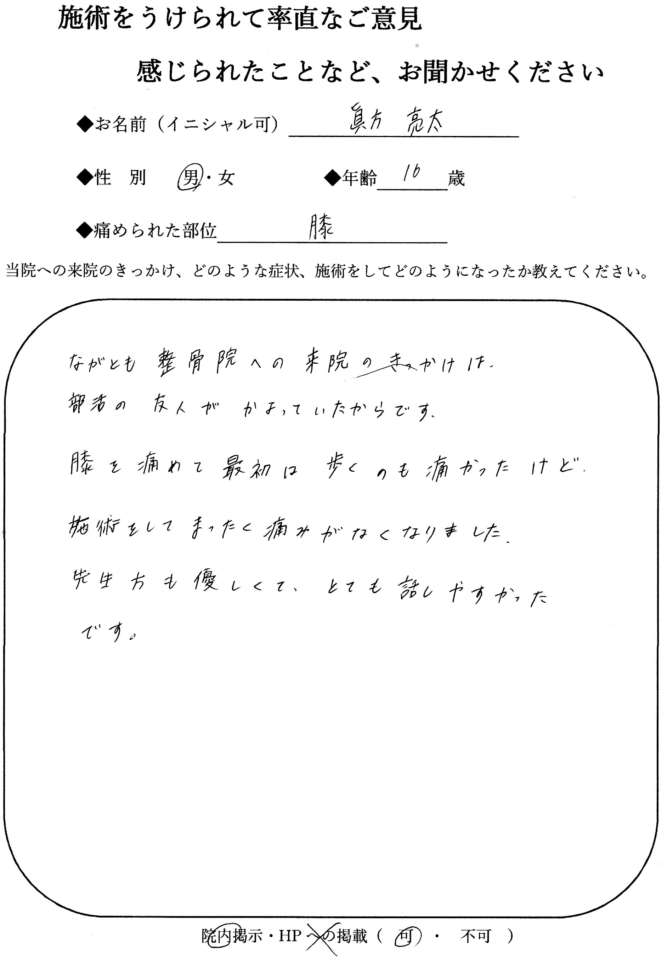 施術をうけられて率直なご意見
感じられたことなど、お聞かせください
◆お名前（イニシャル可） 眞方 亮太
◆性 別 男・女 ◆年齢 16 歳
◆痛められた部位 膝
当院への来院のきっかけ、どのような症状、施術をしてどのようになったか教えてください。
ながとも 整骨院への 来院のきっかけは、
部活の 友人が かよっていたからです。
膝を痛めて最初は 歩くのも痛かったけど、
施術をして まったく痛みがなくなりました。
先生方も優しくて、とても話しやすかった
です。
院内掲示・HPへの掲載（ 可 ・ 不可 ）